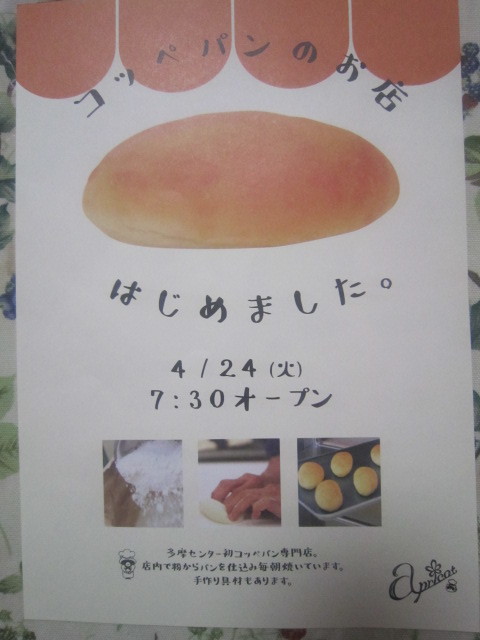 コッペパンのお店
はじめました。
4/24(火)
7:30オープン
多摩センター初コッペパン専門店。
店内で粉からパンを仕込み毎朝焼いています。
手作り具材もあります。
apricot